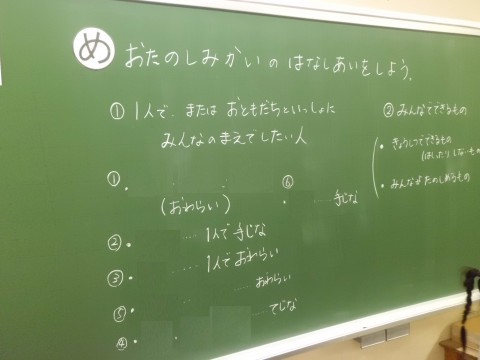 め おたのしみかいの はなしあいをしよう。
① 1人で、または おともだちといっしょに
みんなのまえでしたい人
② みんなでできるもの
・きょうしつでできるもの
(はしったりしないもの
・みんながたのしめるもの
①・
(おわらい)
⑥・ ……手じな
②・ ……1人で手じな
③・ ……1人でおわらい
⑤・ ……おわらい
……てじな
④・ ・